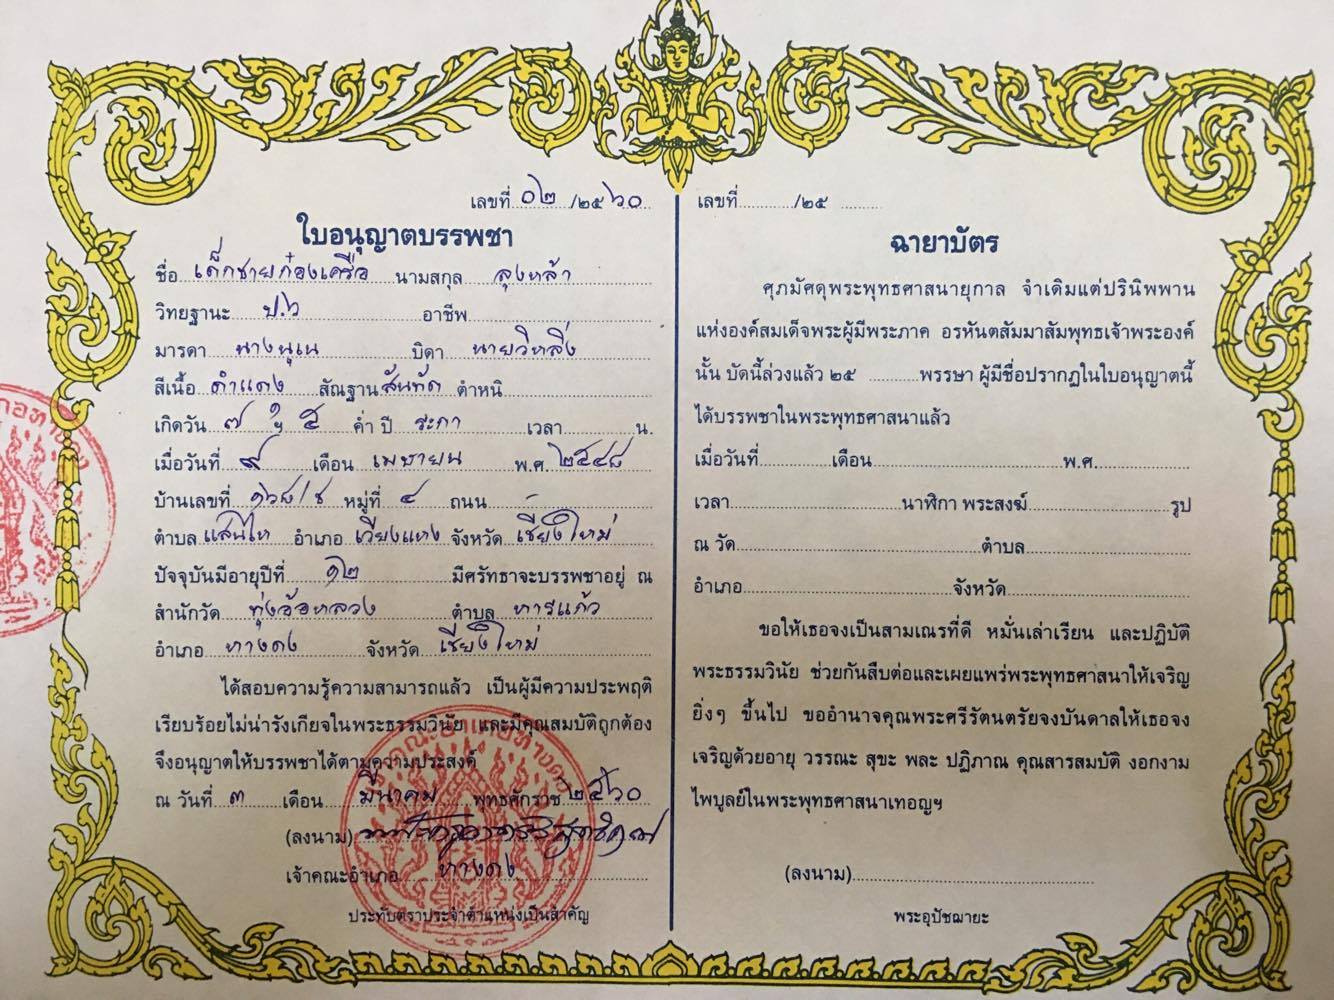 เลขที่ ๐๒ /๒๕๖๐
ใบอนุญาตบรรพชา
ชื่อ เด็กชายก่องเครือ นามสกุล ลุงหล้า
วิทยฐานะ ป.๖ อาชีพ
มารดา นางนุเน บิดา นายวิหลิ่ง
สีเนื้อ ดำแดง สัณฐาน สันทัด ตำหนิ
เกิดวัน ๗ ๕ ค่ำ ปี ระกา เวลา น.
เมื่อวันที่ ๙ เดือน เมษายน พ.ศ. ๒๕๔๘
บ้านเลขที่ ๑๖๘/๘ หมู่ที่ ๔ ถนน
ตำบล แสนไห อำเภอ เวียงแหง จังหวัด เชียงใหม่
ปัจจุบันมีอายุปีที่ ๑๒ มีศรัทธาจะบรรพชาอยู่ ณ
สำนักวัด ทุ่งอ้อหลวง ตำบล หารแก้ว
อำเภอ หางดง จังหวัด เชียงใหม่
ได้สอบความรู้ความสามารถแล้ว เป็นผู้มีความประพฤติ
เรียบร้อยไม่น่ารังเกียจในพระธรรมวินัย และมีคุณสมบัติถูกต้อง
จึงอนุญาตให้บรรพชาได้ตามความประสงค์
ณ วันที่ ๓ เดือน มีนาคม พุทธศักราช ๒๕๖๐
(ลงนาม)
เจ้าคณะอำเภอ หางดง
ประทับตราประจำตำแหน่งเป็นสำคัญ
เลขที่ /๒๕
ฉายาบัตร
ศุภมัศดุพระพุทธศาสนายุกาล จำเดิมแต่ปรินิพพาน
แห่งองค์สมเด็จพระผู้มีพระภาค อรหันตสัมมาสัมพุทธเจ้าพระองค์
นั้น บัดนี้ล่วงแล้ว ๒๕ พรรษา ผู้มีชื่อปรากฏในใบอนุญาตนี้
ได้บรรพชาในพระพุทธศาสนาแล้ว
เมื่อวันที่ เดือน พ.ศ.
เวลา นาฬิกา พระสงฆ์ รูป
ณ วัด ตำบล
อำเภอ จังหวัด
ขอให้เธอจงเป็นสามเณรที่ดี หมั่นเล่าเรียน และปฏิบัติ
พระธรรมวินัย ช่วยกันสืบต่อและเผยแพร่พระพุทธศาสนาให้เจริญ
ยิ่งๆ ขึ้นไป ขออำนาจคุณพระศรีรัตนตรัยจงบันดาลให้เธอจง
เจริญด้วยอายุ วรรณะ สุขะ พละ ปฏิภาณ คุณสารสมบัติ งอกงาม
ไพบูลย์ในพระพุทธศาสนาเทอญฯ
(ลงนาม)
พระอุปัชฌายะ